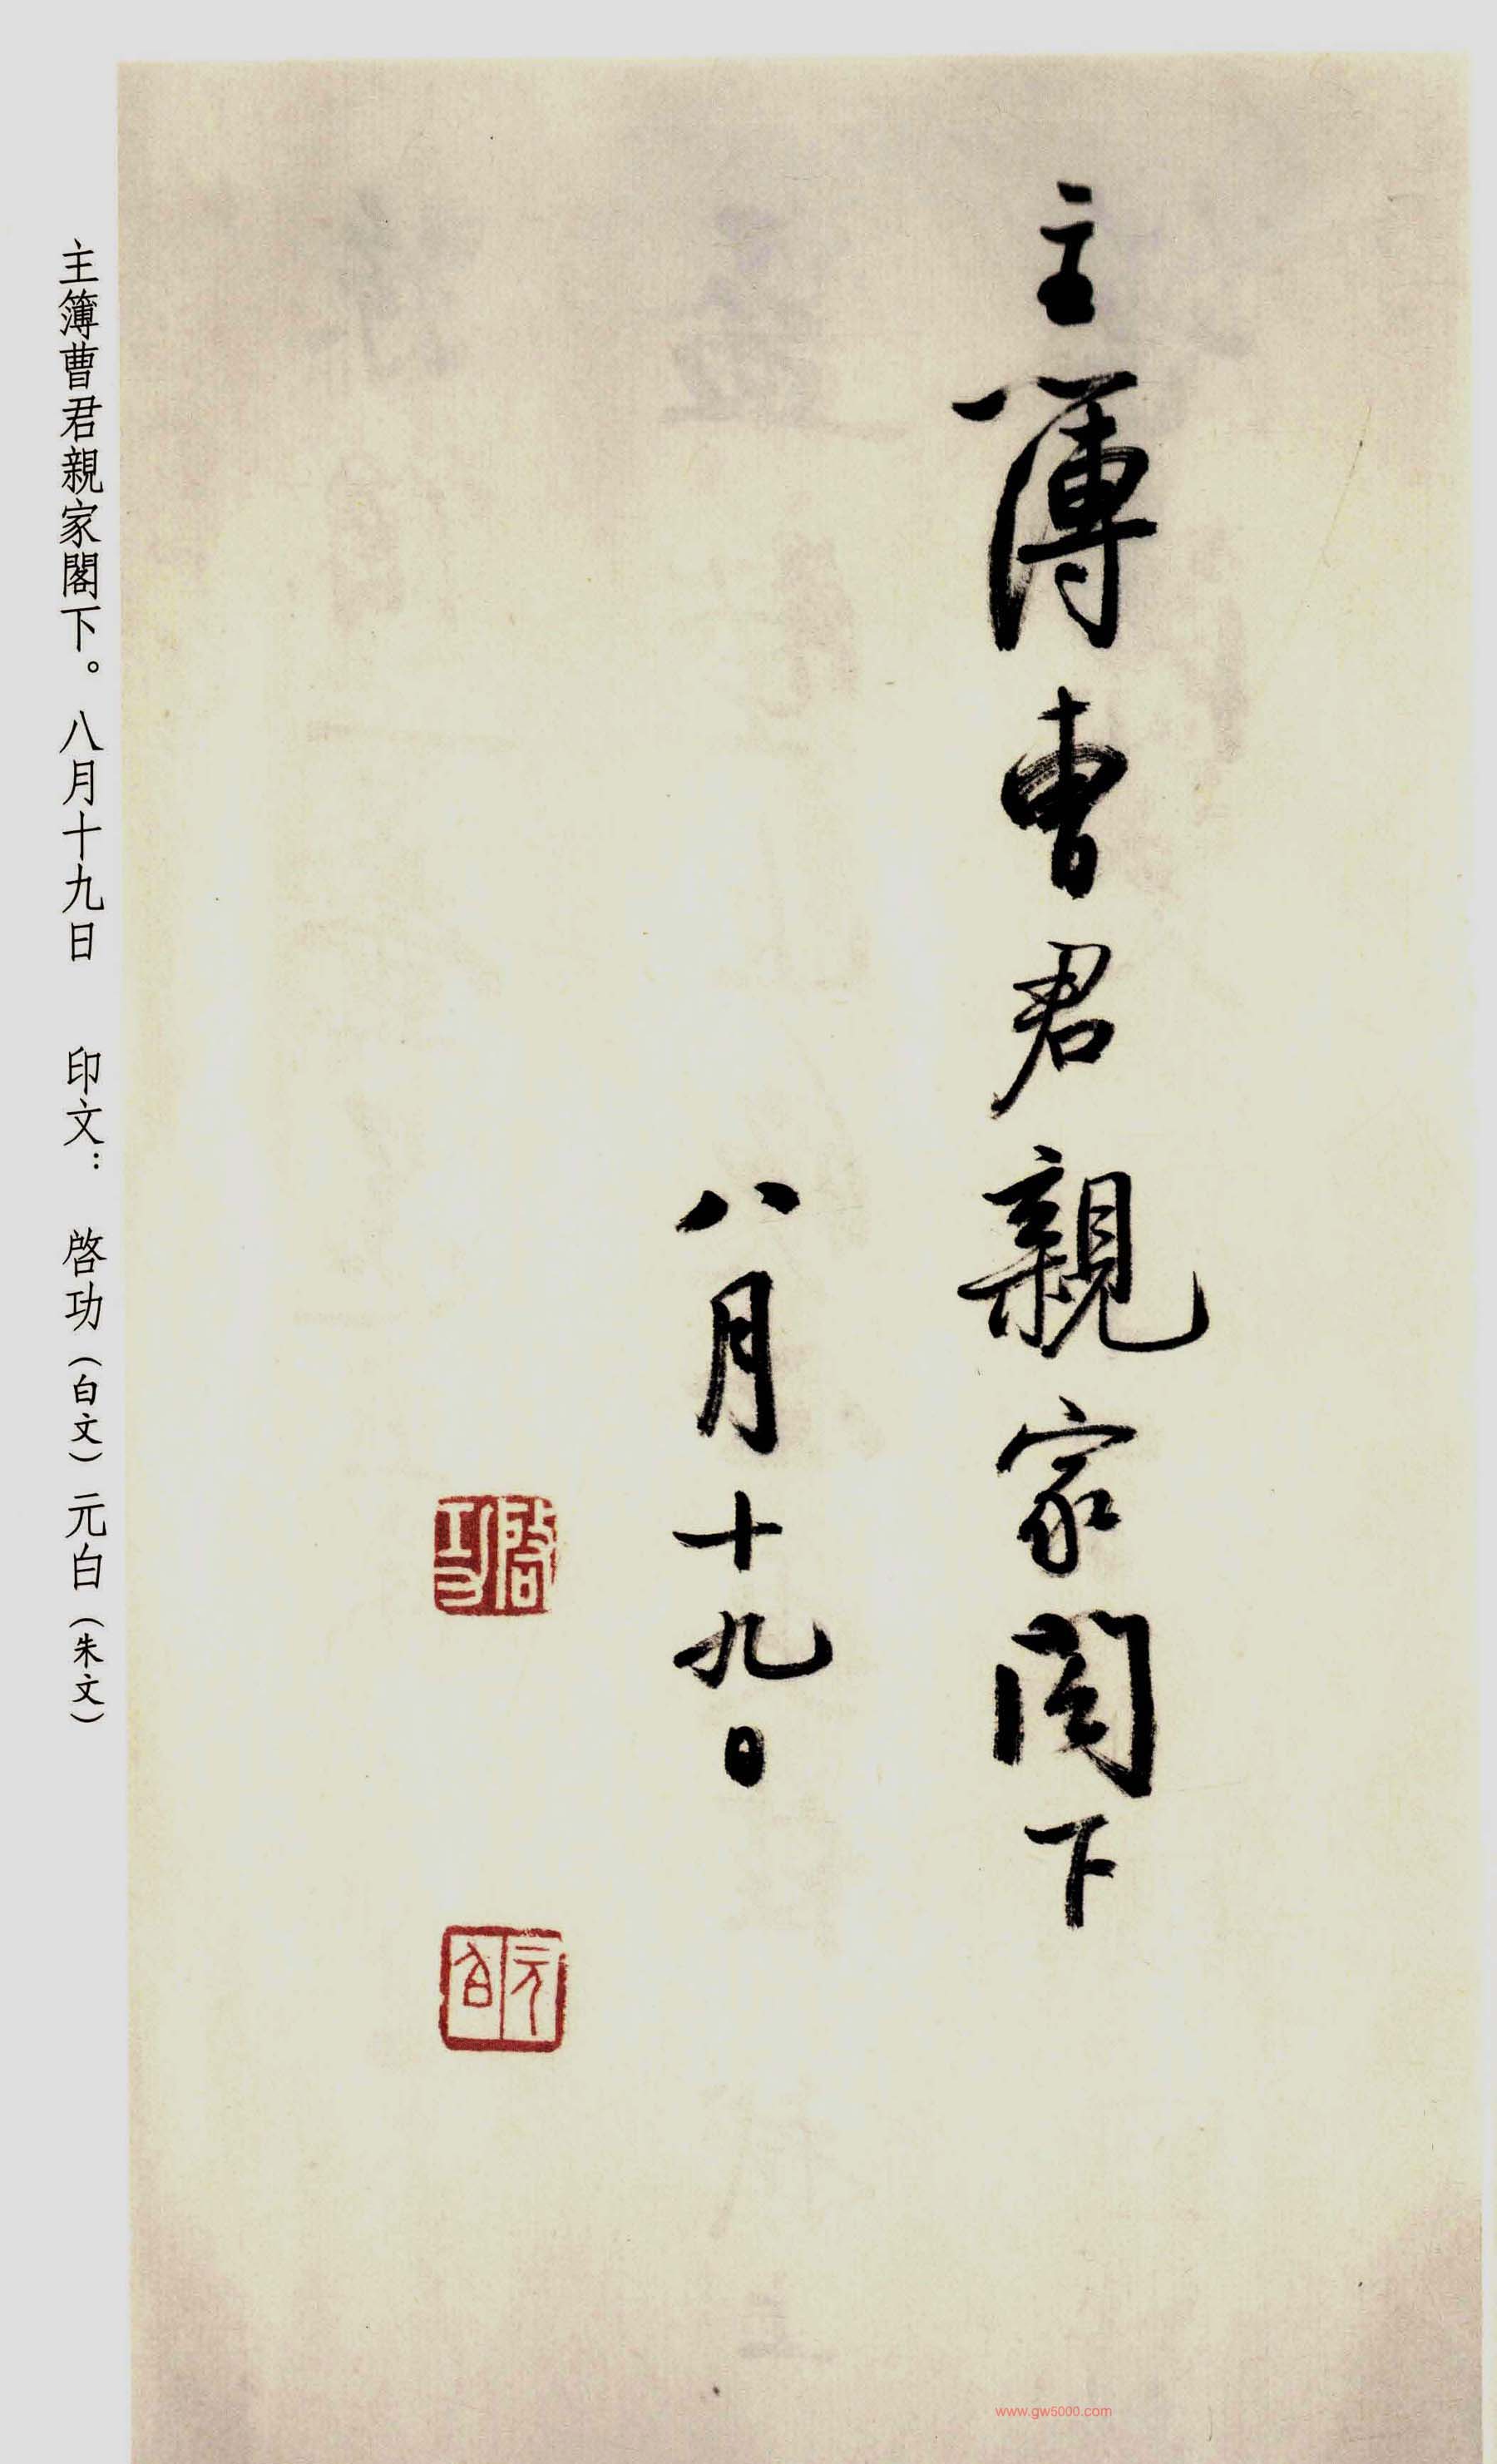 主簿曹君親家閣下
八月十九日
啓功
元白
主簿曹君親家閣下。八月十九日 印文: 啓功(白文)元白(朱文)
www.gw5000.com